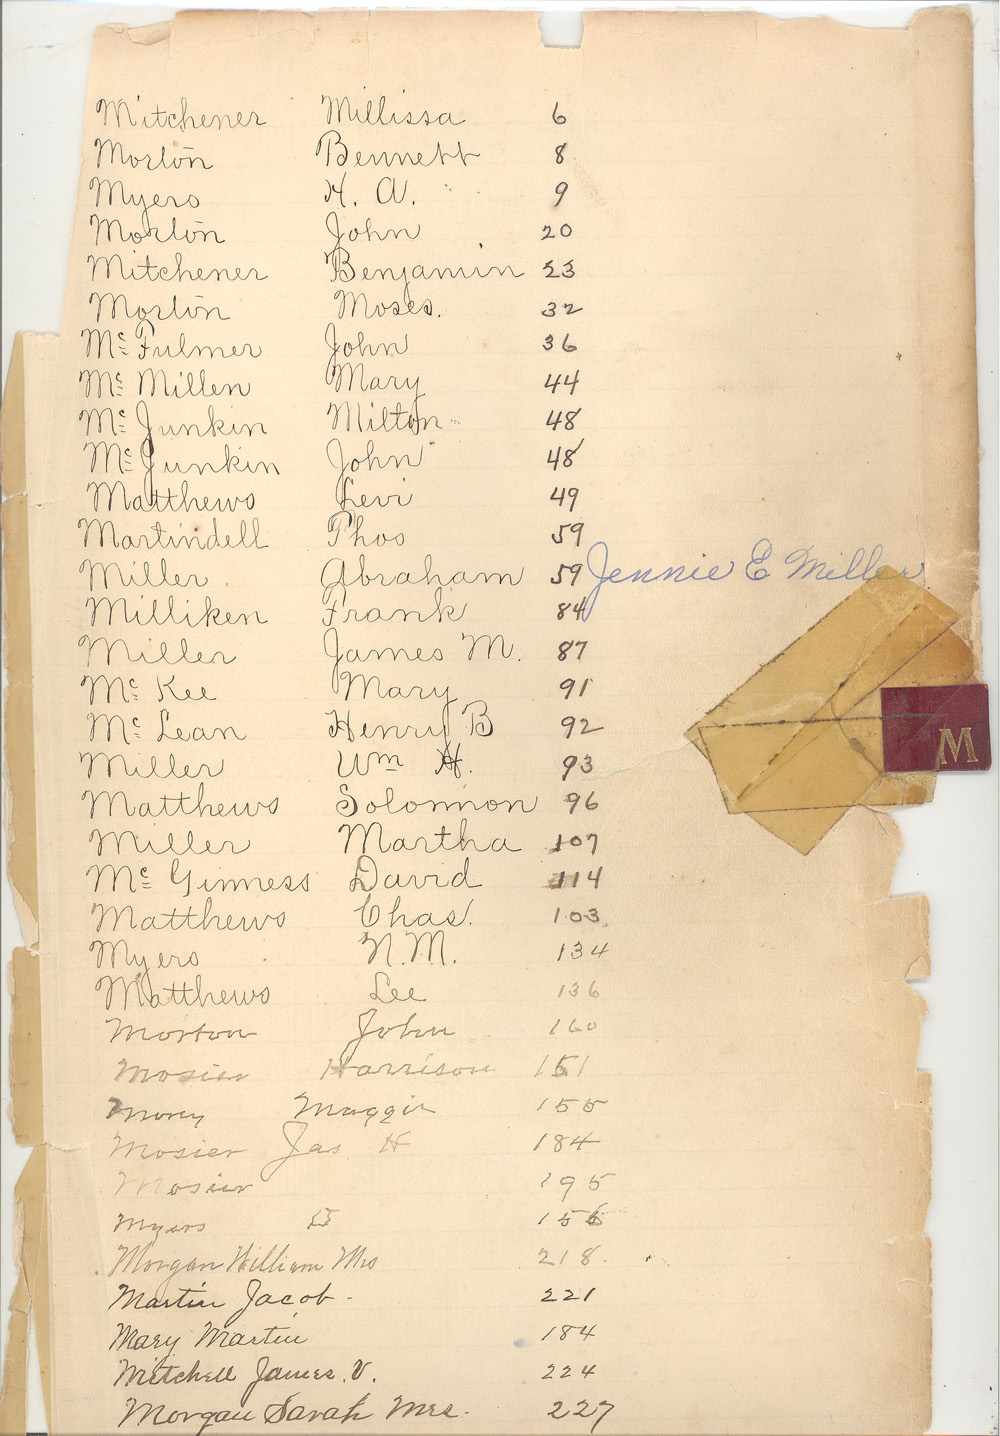 Mitchener Millissa 6
Morton Bennett 8
Myers H. A. 9
Morton John 20
Mitchener Benjamin 23
Morton Moses. 32
Mc Fulmer John 36
Mc Millen Mary 44
Mc Junkin Milton 48
Mc Junkin John 48
Matthews Levi 49
Martindell Phos 59
Miller Abraham 59 Jennie E Miller
Milliken Frank 84
Miller James M. 87
Mc Kee Mary 91
Mc Lean Henry B 92
Miller Wm H. 93
M
Matthews Solomon 96
Miller Martha 107
Mc Ginness David 114
Matthews Chas. 103
Myers N. M. 134
Matthews Lee 136
Morton John 160
Mosier Harrison 151
Maggie 155
Mosier Jas. H 184
Mosier 195
Myers 
Morgan William Mrs 218.
Martin Jacob - 221
Mary Martin 184
Mitchell James. V. 224
Morgan Sarah Mrs. 227